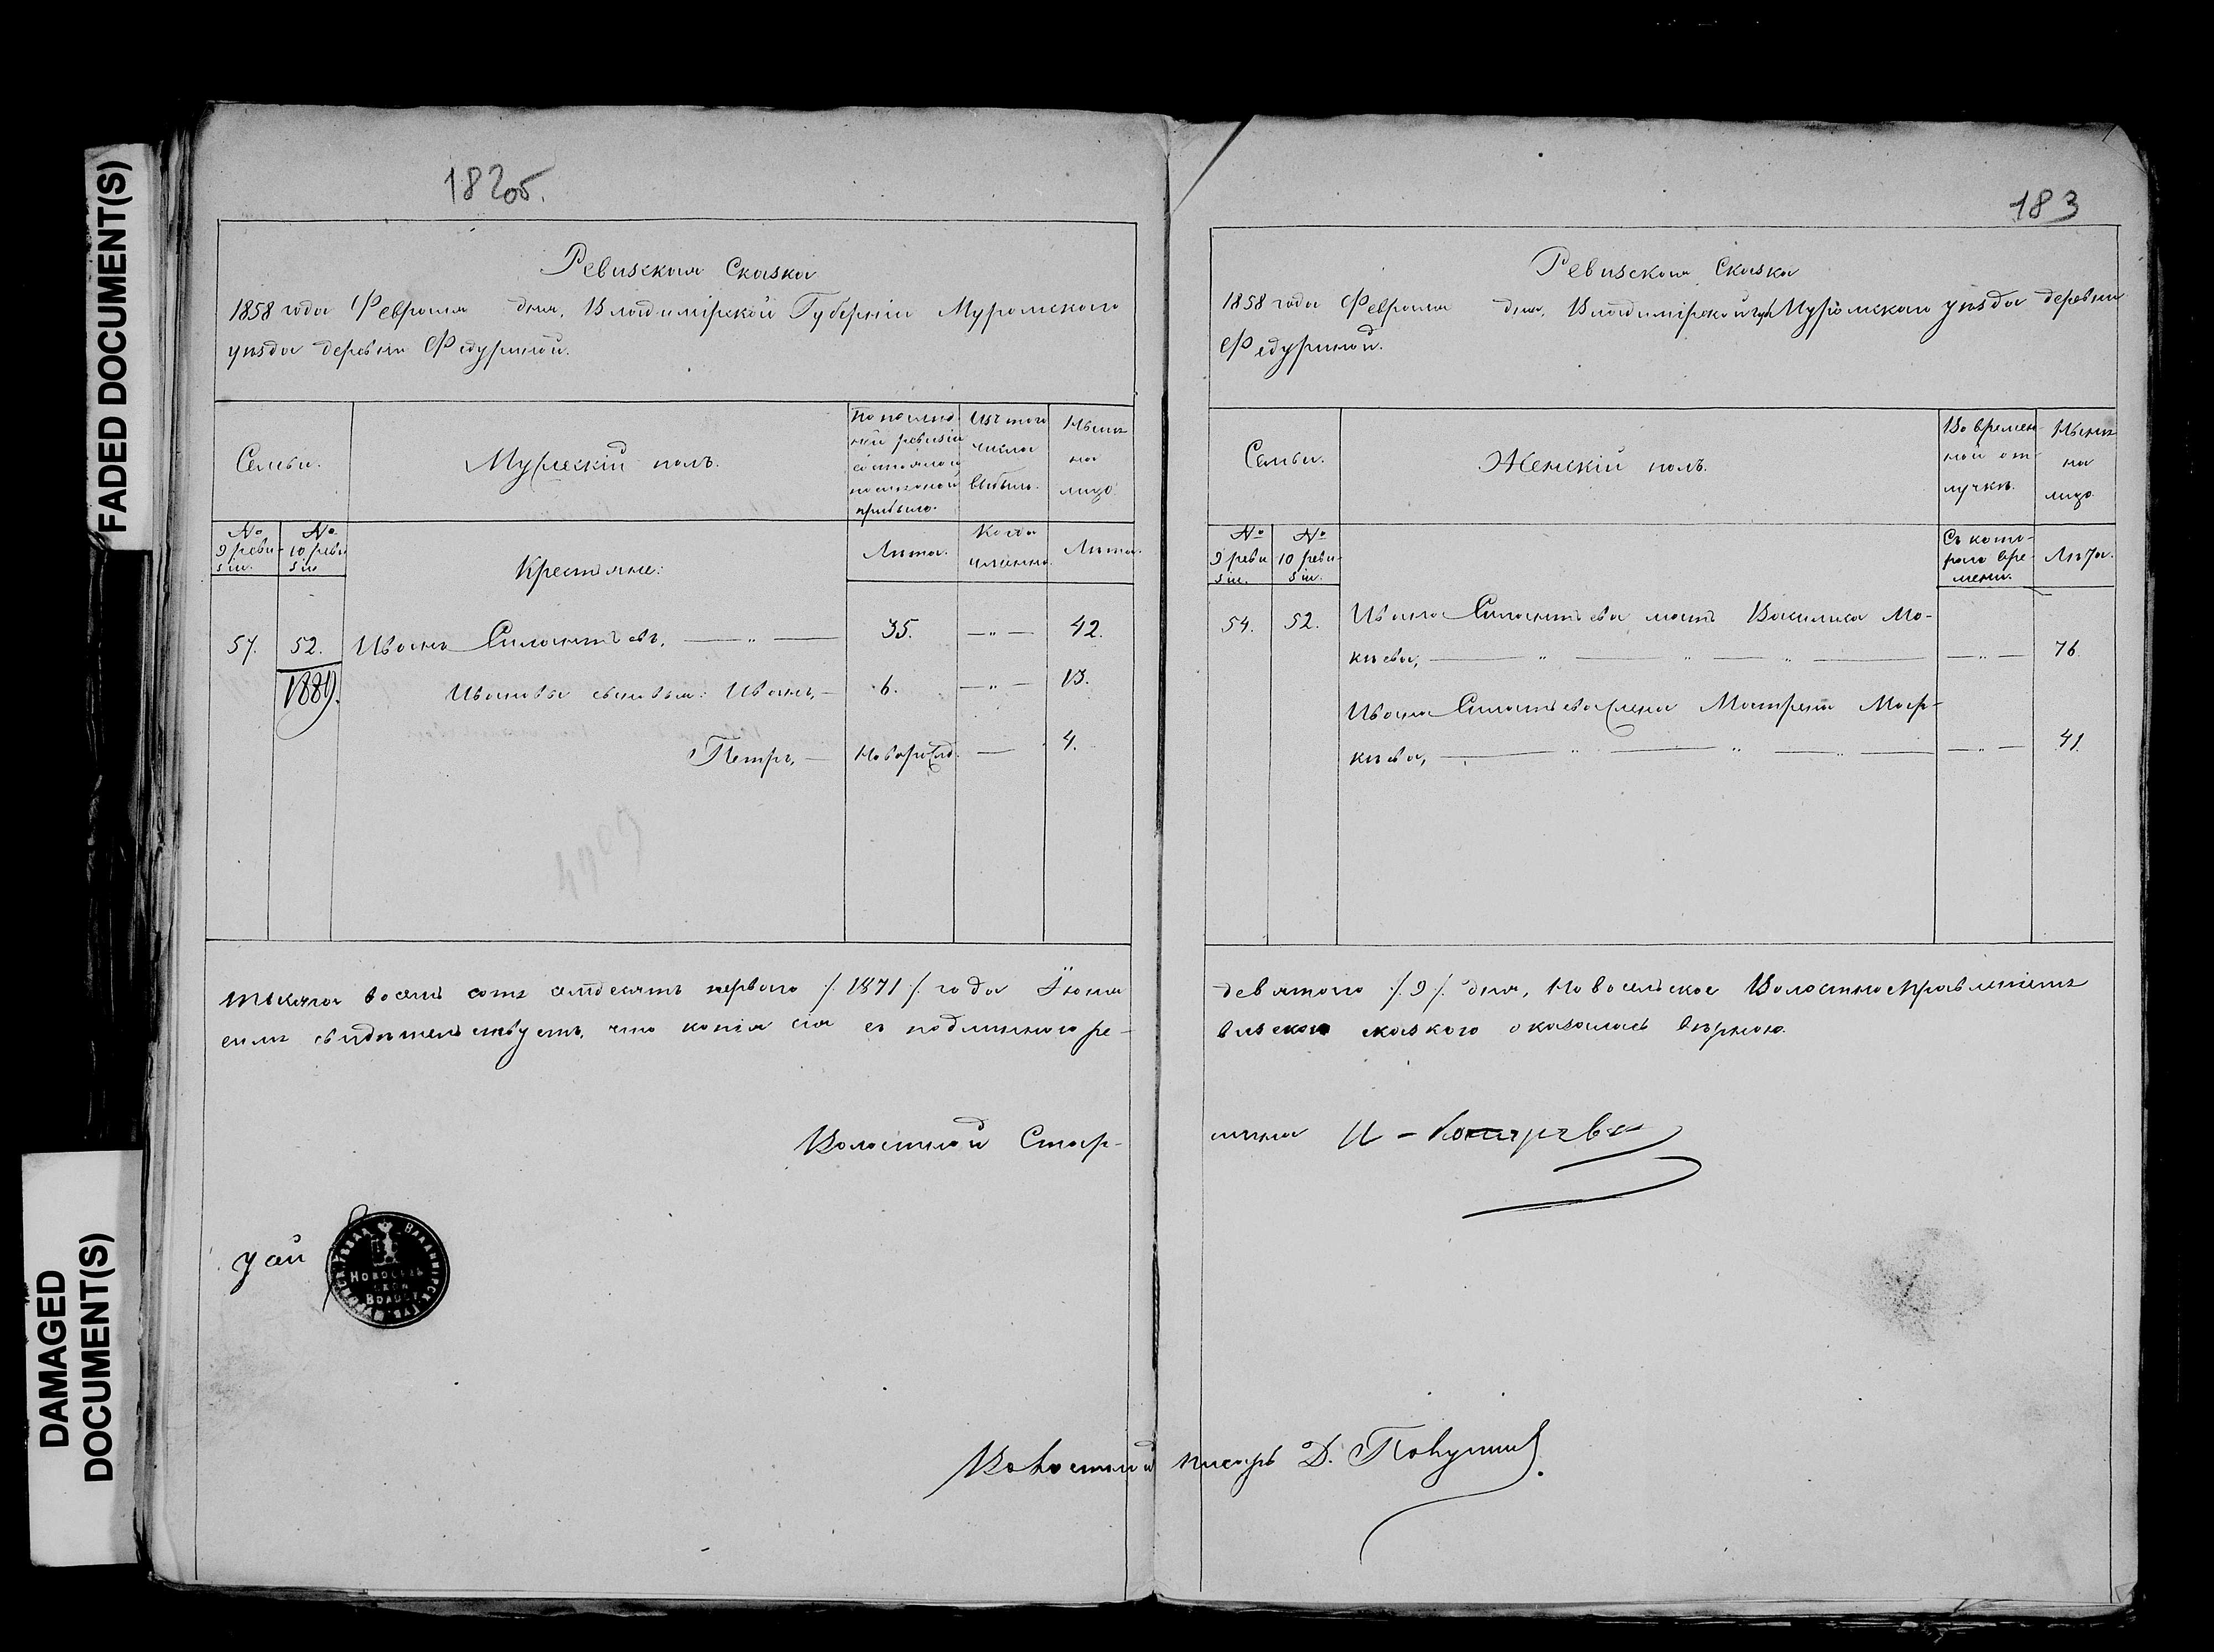 FADED DOCUMENT(S)
DAMAGED
DOCUMENT(S)
182об.
Ревизская Сказка
1858 года Февраля дня, Владимірской Губерніи Муромскаго
уѣзда деревни Федуриной.
Семьи.
Мужескій полъ.
По послѣд-
ней ревизіи
состояло и
послѣ оной
прибыло.
Изъ того
числа
выбыло.
Нынѣ
на
лицо.
№
9 реви-
зіи.
№
10 реви-
зіи
Крестьяне:
Лѣта.
Когда
именно.
Лѣта.
54. 52. Иванъ Силантьевъ, — „ — 35. — „ — 42.
1889.
Ивановы сыновья: Иванъ, — 6. — „ — 13.
Петръ, — Новорожд. — 4.
тысяча восемь сотъ семдесятъ перваго /:1871:/ года Іюня
симъ свидѣтельствуетъ, что копія сія съ подлинного ре-
Волостной Стар-
НОВОСЕЛЬ
СКОЙ
ВОЛОСТ
183
Ревизская Сказка
1858 года Февраля дня, Владимірской губ Муромскаго уѣзда деревни
Федуриной.
Семьи.
Женскій полъ.
Во времен-
ной от-
лучкѣ.
Нынѣ
на
лицо.
№
9 реви
зіи.
№
10 реви-
зіи.
Съ кото-
раго вре-
мени.
Лѣта.
54. 52. Ивана Силантьева мать Василиса Мо-
кѣева, — „ — „ — „ — — „ — 76.
Ивана Силантьева жена Матрена Мар-
кѣева, — „ — „ — „ — — „ — 41.
девятого /:9:/ дня, Новосельское Волостное Правленіемъ
визскою сказкою оказалась вѣрною.
шина
Волостной писарь Д.